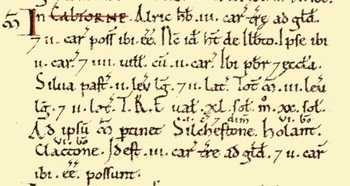 ⱮI̅N CALTORNE. Alric hb̅. III. car̅ tr̅e ad gld̅.
7 II. car̅ poss̅ ibi ee̅. Nc̅ id̅ ht̅ de Ilbto̅. Ipse ibi
II. car̅. 7 IIII. uill̅. cu̅. II. car̅. Ibi pbr̅ 7 eccl̅a.
Silua past̅. II. leu̅ lg̅. 7 II. lat̅. Tot̅ m̅. III. leu̅
lg̅. 7 II. lat̅. T.R.E. ual̅. XL. sol̅. m̅. XX. sol̅.
Ad ipsu̅ m̅ p̅tinet Silchestone. Holant.
Clactone. Id est. III. car̅ tr̅e ad gld̅. 7 II. car̅
ibi. ee̅. possunt.